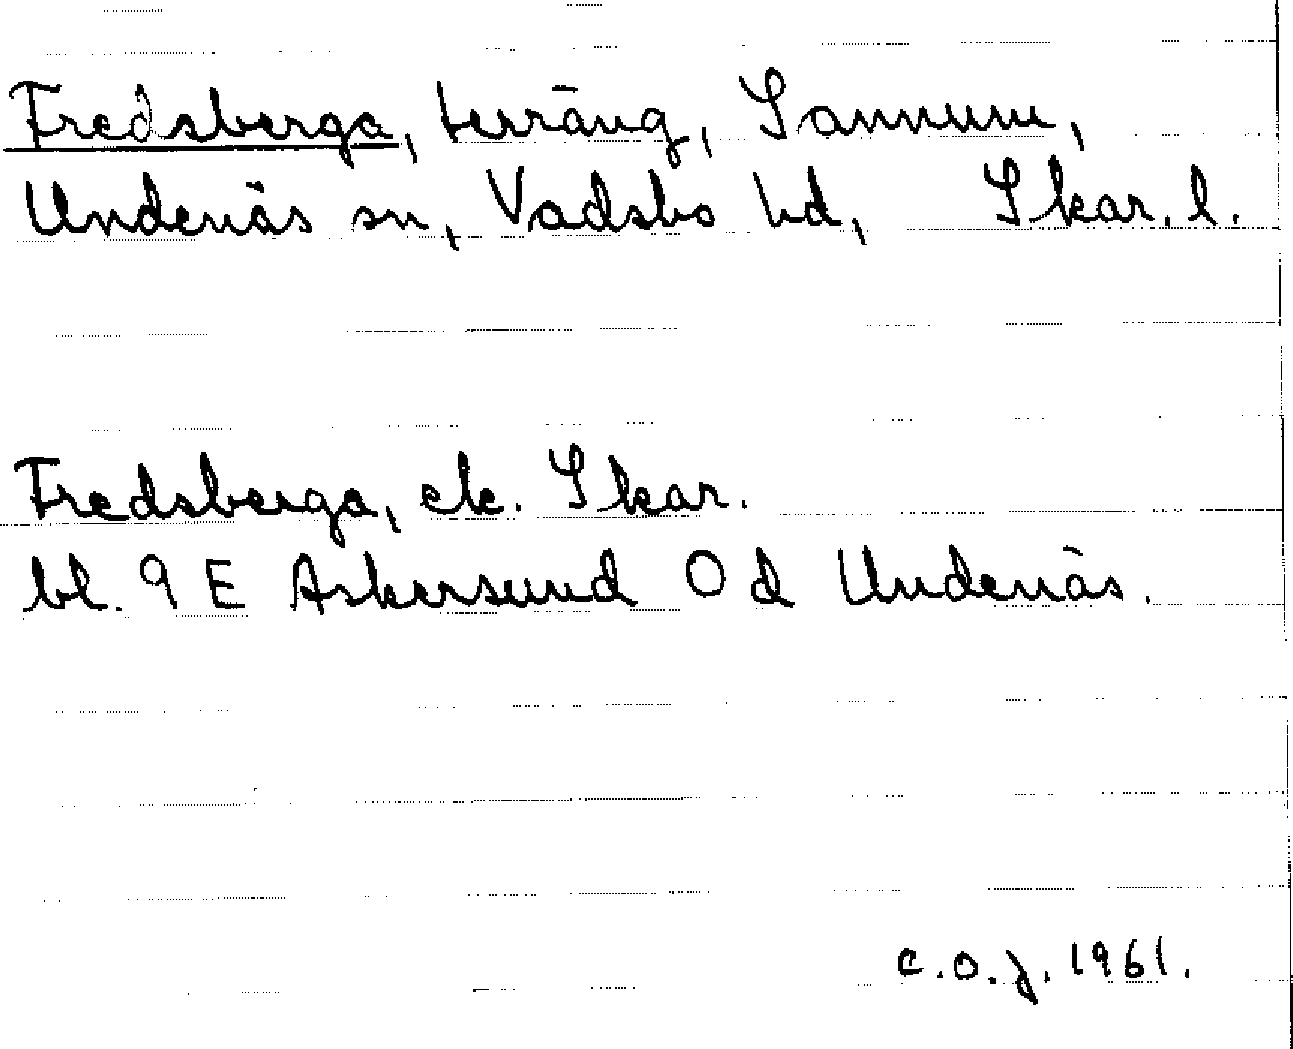 Fredsberga, terräng, Sannum,
Undenäs sn, Vadsbo hd, Skar. l.
Fredsberga, ek. Skar.
bl. 9 E Askersund 0 d Undenäs.
C.O.J. 1961.